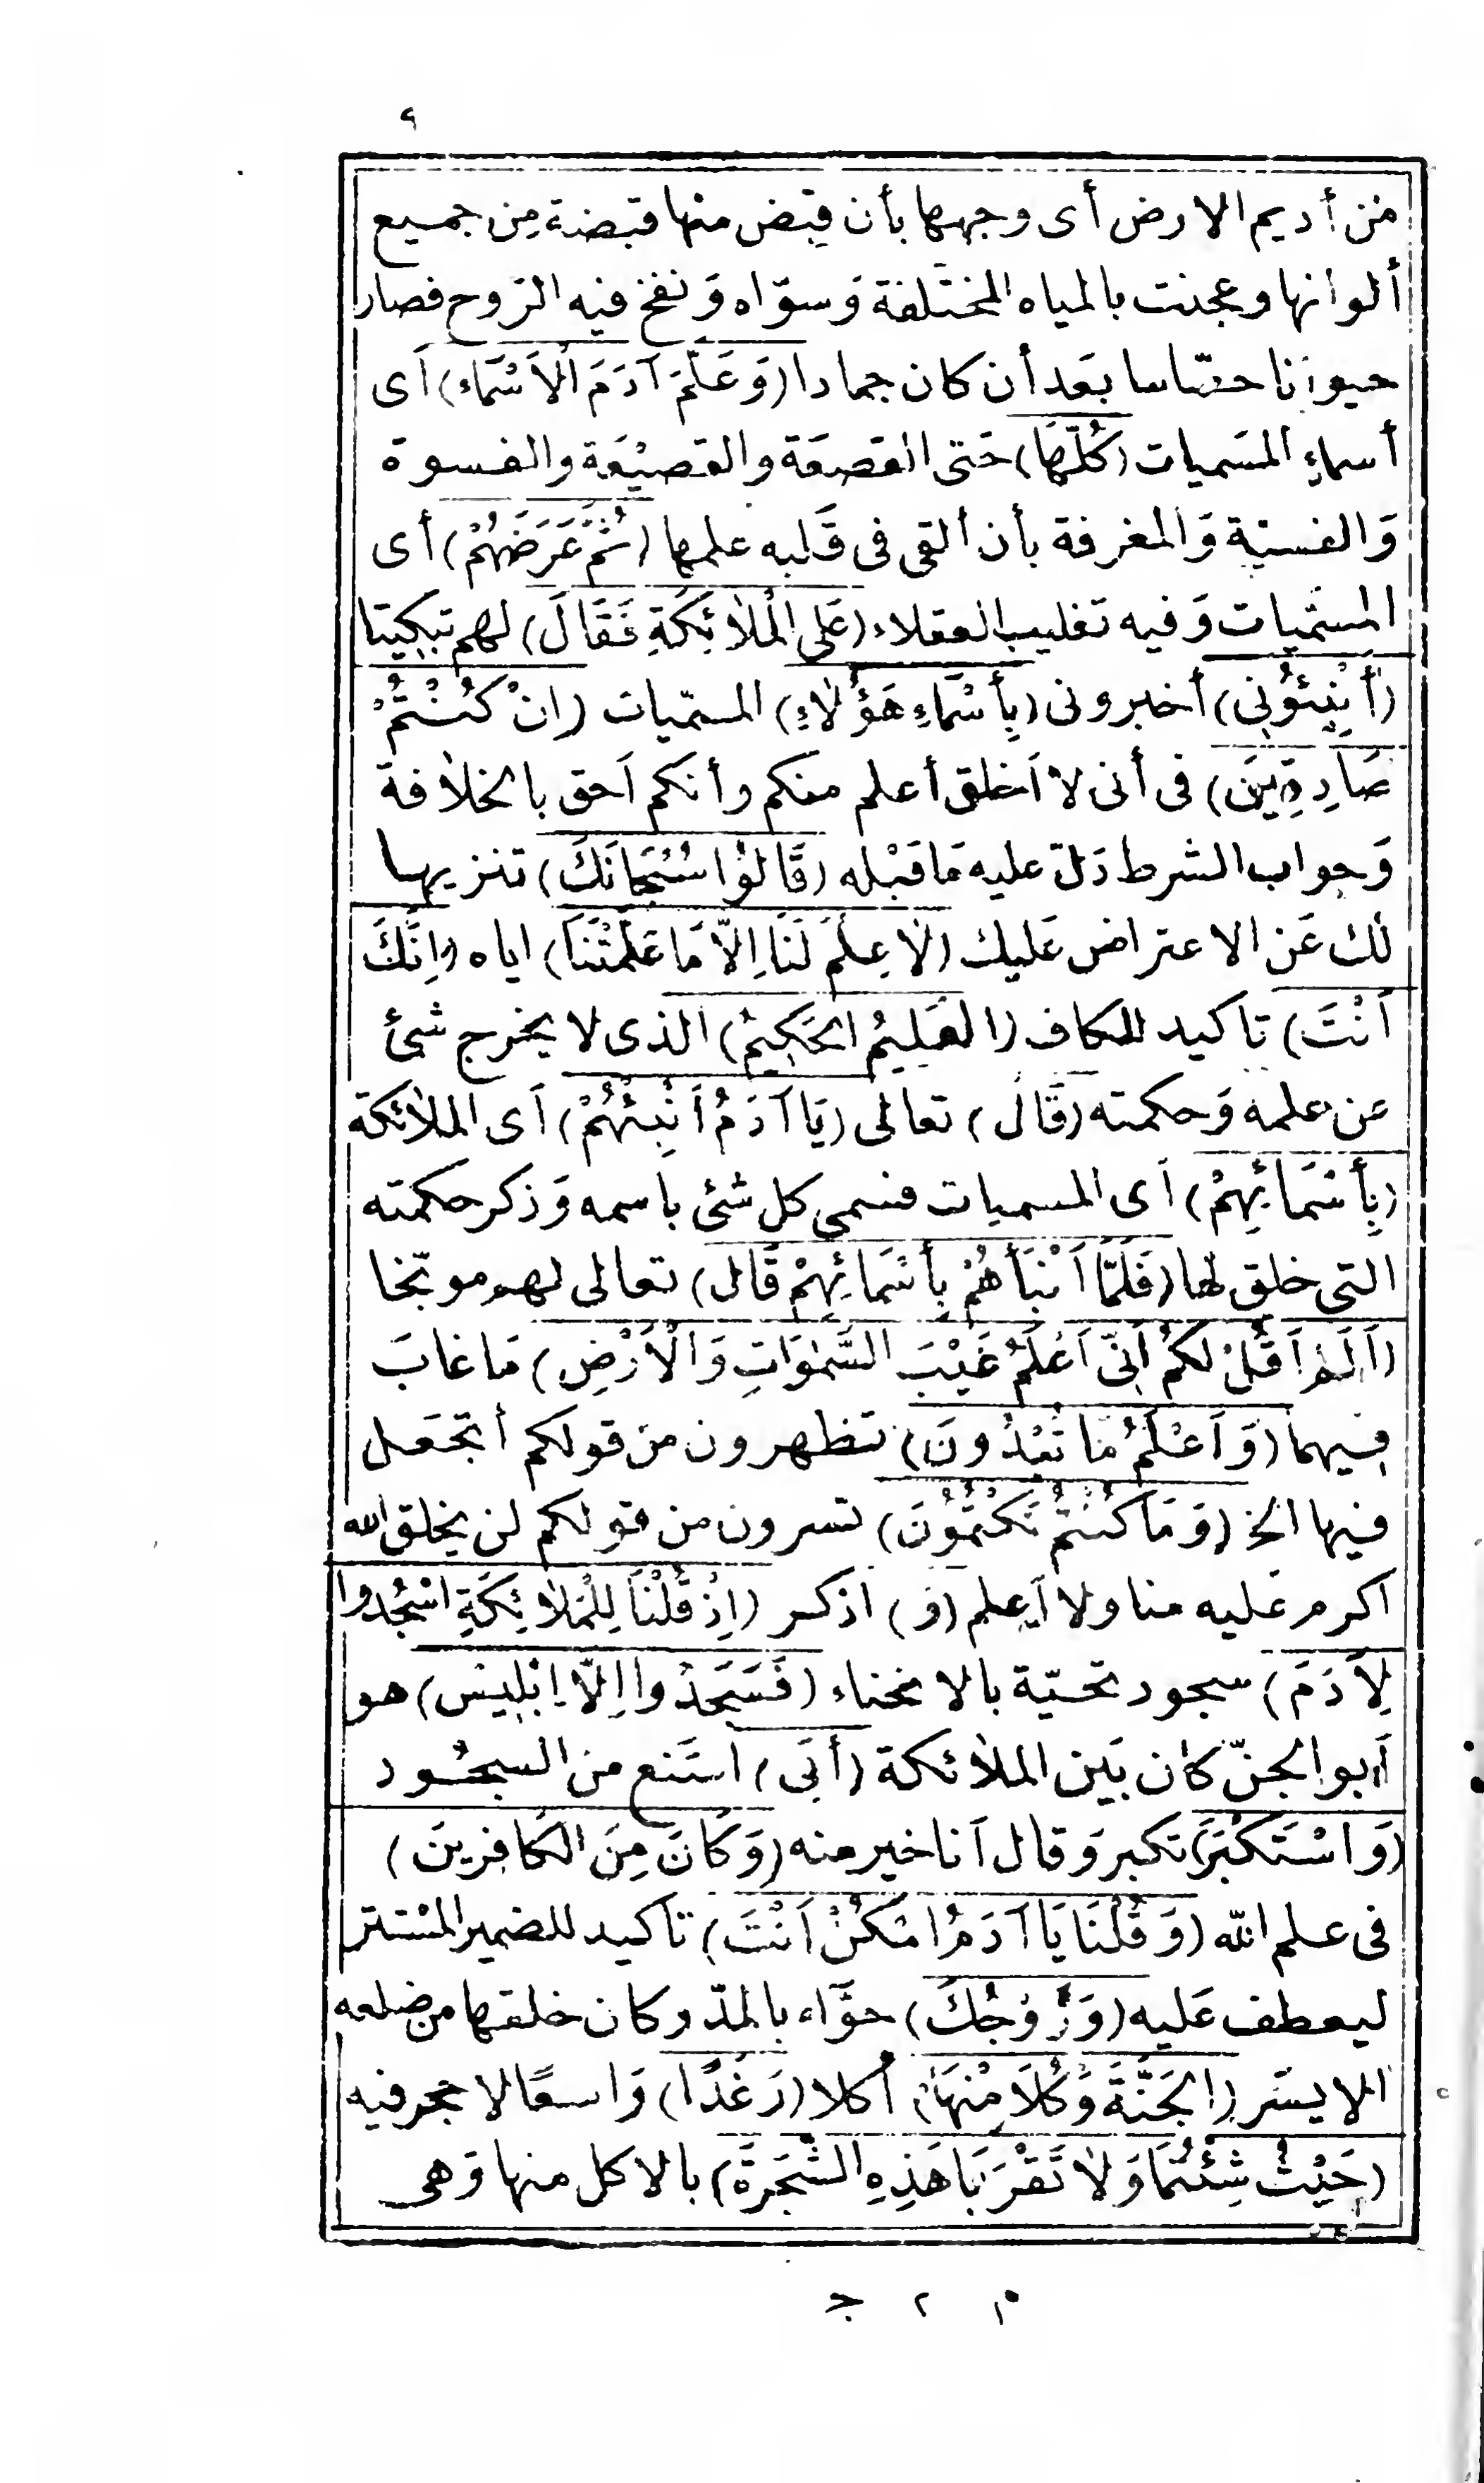 ٩
من أديم الارض أى وجهها بأن قبض منها قبضة من جميع
ألوانها وعجنت بالمياه المختلفة وَسوّاه وَنفخ فيه الرّوح فصار
حيوانا حسّاسا بعَد أن كان جمادا (وَعَلَّمَ آدَمَ الْاَسْمَاء) آى
أسماءِ المسَميات (كُلَّهَا) حَتى القصعَة والقصيْعَة والفسوة
وَالفسيّة وَالمغرفة بأن ألقى فى قَلبه علمها (ثُمَّ عَرَضَهُمْ) أى
المسَّميات وَفيه تغليب العقلاء (عَلَى الْمَلاٰئِكَةِ فَقَالَ) لهم تبكيتا
(أَنْبِئوُنِي) أخبرونى (بِأَسْمَاءِ هَؤُلاٰءِ) المسمّيات (اِنْ كُنْتُمْ
صَادِقِيَن) فى أنى لا آخلق أعلم منكم وأنكم آحق بالخلاٰفة
وَجواب الشرط دَلّ عليه مَا قبْله (قَالوُا سُبْحَانَكَ) تنزيها
لك عَن الاعتراض عَليك (لاٰ عِلْمَ لَنَا اِلاّ مَا عَلَّمْتَنَا) اياه (اِنَّكَ
اَنْتَ) تاكيد للكاف (العَلِيُم الحَكِيُم) الذى لا يخرج شئ
عن علمه وَحكمته (قَالَ) تعالى (يَا آدَمُ أَنْبِئْهُمْ) آى الملاٰئكة
(بِأَسْمَائِهِمْ) آى المسميات فسمى كل شئ باسمه وَذكر حكمته
التى خلق لها (فَلَمَّا اَنْبَأَهُمْ بِأَسْمَائِهِمْ قَال) تعالى لهم موبّخا
(اَلَمْ اَقُلْ لَكُمْ اِنّىِ اَعْلَمُ غَيْبَ السَّمٰوَاتِ وَالْاَرْضِ) مَا غابَ
فيهما (وَاَعْلَمُ مَا تُبْدُونَ) تظهرون من قولكم أتجعَل
فيها الخ (وَمَا كُنتُمْ تَكْتُمُوْنَ) تسرون من قولكم لن يخلق الله
اكرم عَليه منا ولا آعلم (وَ) اذكر (اِذْ قُلْنَا لِلْمَلاٰئِكَةِ اسْجُدوا
لِاٰدَمَ) سجود تحيّة بالانحناء (فَسَجَدُوا اِلاّ اِبْلِيسَ) هو
آبو الجنّ كان بَين الملاٰئكة (أَبَى) امتَنع من السجُود
(وَاسْتَكْبَرَ) تكبر وَقال آنا خير منه (وَكَانَ مِنَ الكَافِرِينَ)
فى علم الله (وَقُلْنَا يَا آدَمُ اسْكُنْ اَنْتَ) تاكيد للضمير المسْتتر
ليعطف عَليه (وَزَوْجُكَ) حوَّاء بالمدّ وكان خلقها من ضلعه
الايسَر (الجَنَّةَ وَكُلَا مِنْهَا) أكلا (رَغَدًا) وَاسعًا لا حجر فيه
(حَيْثُ شِئْتُمَا وَلاٰ تَقْرَبَا هَذِهِ الشَّجَرَةَ) بالاكل منها وَهى
م ٢ ج